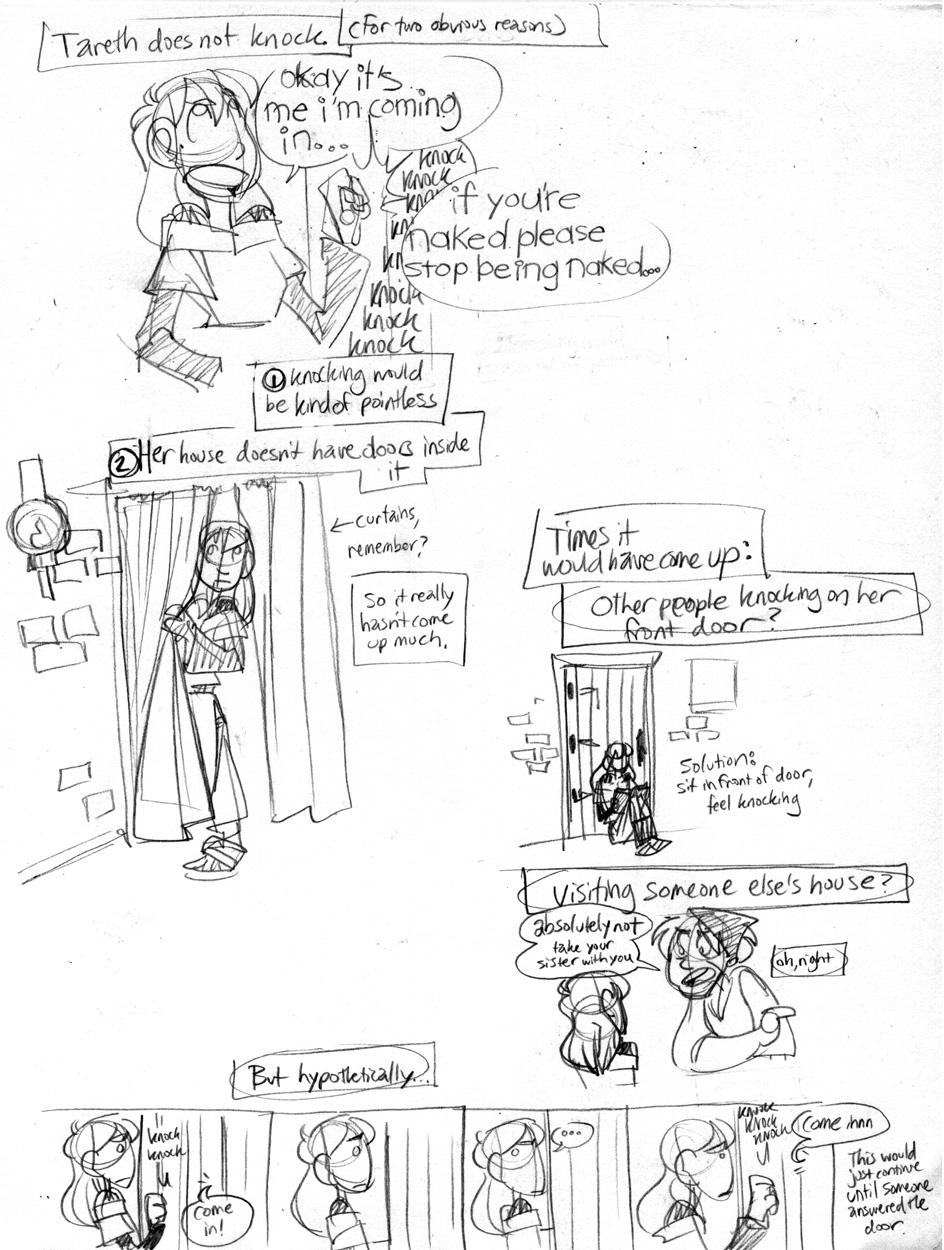 Tareth does not knock.
(For two obvious reasons)
okay it's
me i'm coming
in...
knock
knock
kn
kn
kn
kn
knock
knock
knock
if you're
naked please
stop being naked...
① knocking would
be kind of pointless
② Her house doesn't have doors inside
it
← curtains,
remember?
So it really
hasn't come
up much.
Times it
would have come up:
Other people knocking on her
front door?
Solution:
sit in front of door,
feel knocking
Visiting someone else's house?
absolutely not
take your
sister with you
oh, right
But hypothetically...
knock
knock
come
in!
...
knock
knock
knock
Come innn
This would
just continue
until someone
answered the
door.